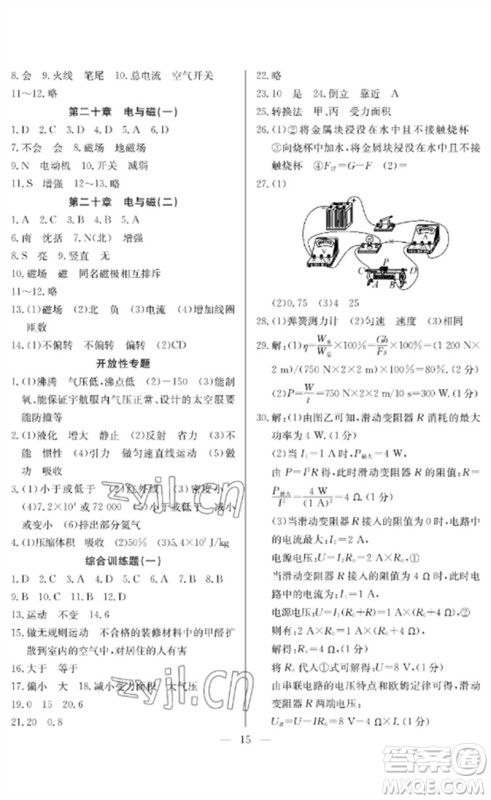 8.会 9.火线 笔尾 10.总电流 空气开关
11~12.略
第二十章 电与磁(一)
1.D 2.C 3.D 4.D 5.B 6.A
7.不会 会 8.磁场 地磁场
9.N 电动机 10.开关 减弱
11.S 增强 12~13.略
第二十章 电与磁(二)
1.B 2.A 3.D 4.B 5.B
6.南 沈括 7.N(北) 增强
8.S 亮 9.竖直 N
10.磁场 磁 同名磁极相互排斥
11~12.略
13.(1)磁场 (2)北 负 (3)电流 (4)增加线圈
匝数
14.(1)不偏转 (2)偏转 (2)CD
开放性专题
1.(1)沸腾 气压低,沸点低 (2)①耐高低温性
能,能保证宇航服内气压正常,设计的太空服要
能防撞等
2.(1)液化 增大 静止 (2)反射 省力 (3)不
能 惯性 (4)引力 运动状态 (5)D (6)做
功 吸收
3.(1)小于或低于 (2)红外线 (3)密度小
(4)7.2×10⁴ 大于 (5)小于或低于 变大
或变小 (6)排出部分氦气
4.(1)压缩体积 吸收 (2)50% (3)5.4×10⁵ J/kg
综合训练题(一)
1.D 2.D 3.C 4.A 5.A 6.B 7.A 8.D
9.B 10.C 11.D 12.A
13.运动 不变 14.6
15.做无规则运动 不合格的装修材料中的甲醛扩
散到室内的空气中,对居住的人有害
16.大于 等于
17.偏小 大 18.减小受力面积 大气压
19.0 15 20.6
21.20 0.8
22.略
23.10 是 24.倒立 靠近 A
25.转换法 甲、丙 受力面积
26.(1)②将金属块浸没在水中且不接触烧杯
③向烧杯加水中,将金属块浸没在水中且不接
触烧杯 ④F浮=G-F (2)=
27.(1)
P
A B
(2)0.75 (3)4 25
28.(1)弹簧测力计 (2)匀速 速度 (3)相同
29.解:(1)η=W有/W总×100%=Gh/Fs×100%=(1 200 N×
2 m)/(750 N×2×2 m)×100%=80%
(2)P=W/t=750 N×2×2 m/10 s=300 W
30.解:(1)由图乙可知,滑动变阻器 R 消耗的最大
功率为 4 W。(1分)
(2)当滑动变阻器 R 的电功率 P最大=4 W时,
由 P=I²R 得滑动变阻器 R 的阻值:R=
P最大/I²=4 W/(1 A)²=4 Ω。(1分)
(3)当滑动变阻器 R 接入的阻值为 0 时,电路中
的电流最大:I₂=2 A(1分)
电源电压:U=I₂R₀=2 A×R₀①(1分)
当滑动变阻器 R 接入的电阻为 4 Ω 时,此时电
路中的电流:I=1 A(1分)
电源电压:U=I(R₀+R)=1 A×(R₀+4 Ω)②
(1分)
解得:R₀=4 Ω(1分)
将 R₀ 代入①式可得:U=8 V(1分)
由串联电路的电压和欧姆定律可得,
U_R=U-IR₀=8 V-1 A×4 Ω=4 V(1分)
15
zyjl.cn
zyjl.cn
答案圈